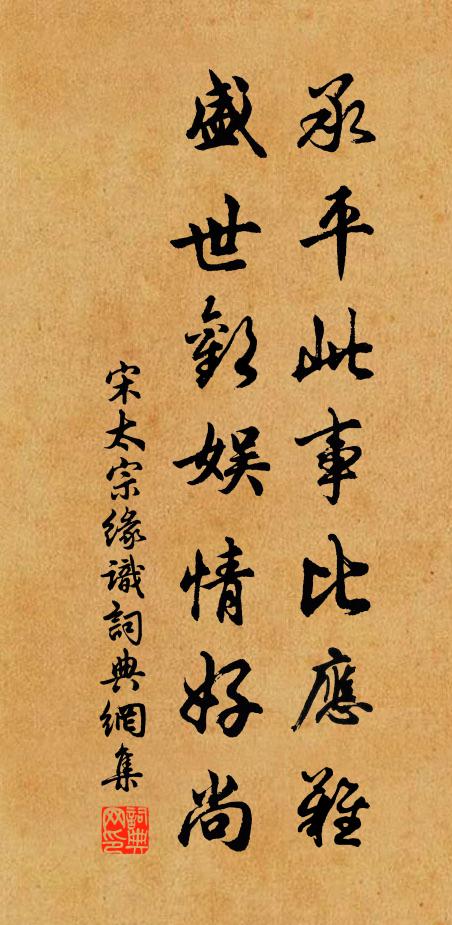 承平此事比應難
盛世歡娛情好尚
宋太宗緣識詞典網集
詞典网印